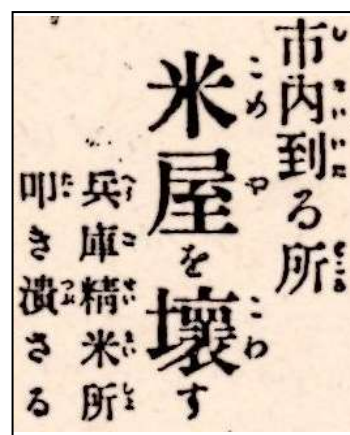 市内到る所
米屋を壊す
兵庫精米所
叩き潰さる